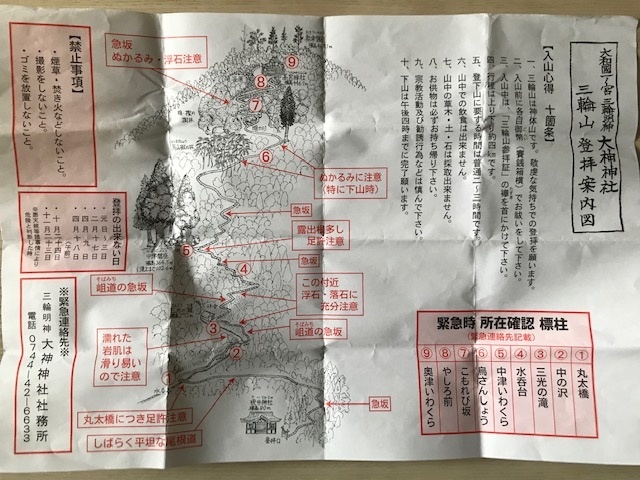 大和國一ノ宮 三輪明神 大神神社
三輪山 登拝案内図
【入山心得 十箇条】
一、三輪山は御神体山です。敬虔な気持ちでの登拝を願います。
二、入山前に各自御幣(賽銭箱横)でお祓いをして下さい。
三、入山中は、「三輪山参拝証」の襷を首にかけて下さい。
四、行程は上り下り約四㎞です。
五、登下山に要する時間は普通二~三時間です。
六、山中での飲食は出来ません。
七、山中の草木・土・石は採取出来ません。
八、お供物は必ずお持ち帰り下さい。
九、宗教活動及び勧誘行為はお慎み下さい。
十、下山は午後四時までに完了願います。
緊急時 所在確認 標柱
(緊急連絡先記載)
① 丸太橋
② 中の沢
③ 三光の滝
④ 水呑台
⑤ 中津いわくら
⑥ 烏さんしょう
⑦ こもれび坂
⑧ やしろ前
⑨ 奥津いわくら
急坂
ぬかるみ・浮石注意
⑨
⑧
⑦
⑥
ぬかるみに注意
(特に下山時)
急坂
露出根多し
足許注意
⑤
急坂
④
この付近
浮石・落石に
充分注意
そばみち
岨道の急坂
そばみち
岨道の急坂
③
②
濡れた
岩肌は
滑り易い
ので注意
①
丸太橋につき足許注意
しばらく平坦な尾根道
急坂
登拝口
【禁止事項】
・煙草・焚き火などしないこと。
・撮影をしないこと。
・ゴミを放置しないこと。
登拝の出来ない日
・元日~三日
・二月十七日
・四月九日
・四月十八日
(午前)
・十一月二十三日
※緊急連絡先※
三輪明神 大神神社社務所
電話 0744-42-6633